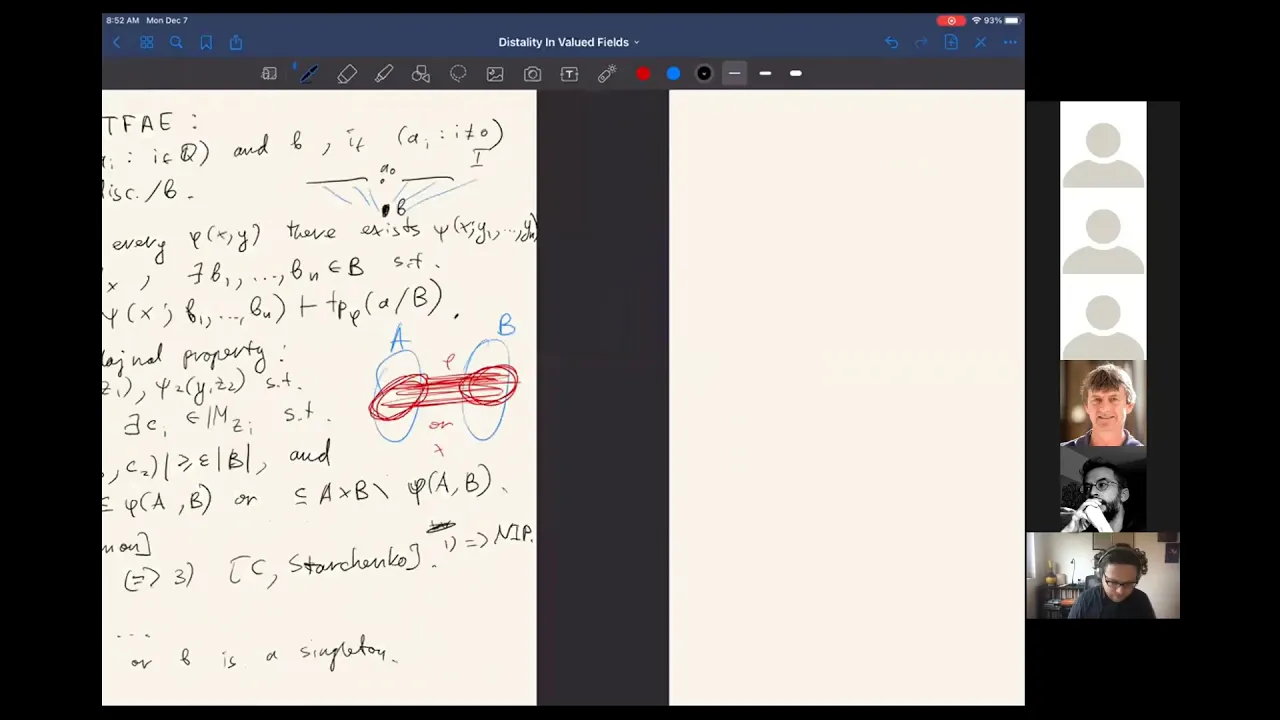 8:52 AM Mon Dec 7
93%
Distality In Valued Fields
T
TFAE :
a_i : i ∈ ℚ) and b, if (a_i : i ≠ 0)
I
a_0
disc. / b.
b
every φ(x,y) there exists ψ(x; y_1, ..., y_n)
x , ∃ b_1, ..., b_n ∈ B s.t.
ψ(x; b_1, ..., b_n) ⊢ tp_φ(a/B).
A B
property :
z_1), ψ_2(y, z_2) s.t.
φ
∃ c_i ∈ M_{z_i} s.t.
or
, c_2)| ≥ ε|B|, and
⊆ φ(A, B) or ⊆ A×B \ φ(A, B).
mon]
1) => NIP.
(=> 3) [C, Starchenko].
...
or b is a singleton.